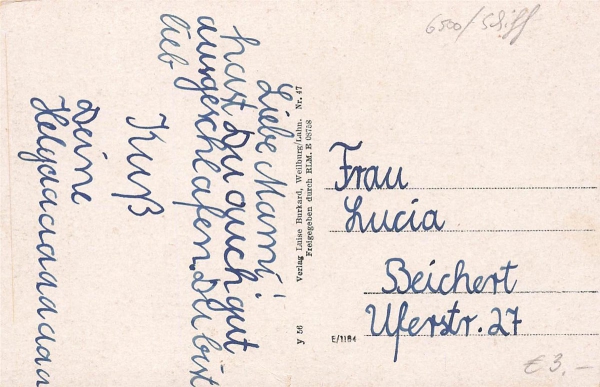 6500/Schiff
Liebe Mami!
hast Du auch gut
ausgeschlafen. Du bist
lieb
Kuß
Deine
Verlag Luise Burkard, Weilburg/Lahn. Nr. 47
Freigegeben durch RLM. E 08758
y 56
E/1184
Frau
Lucia
Beichert
Uferstr. 27
€ 3,-